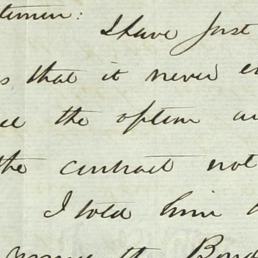 I have just
that it never
the option
the contract not
I told him
the Bond